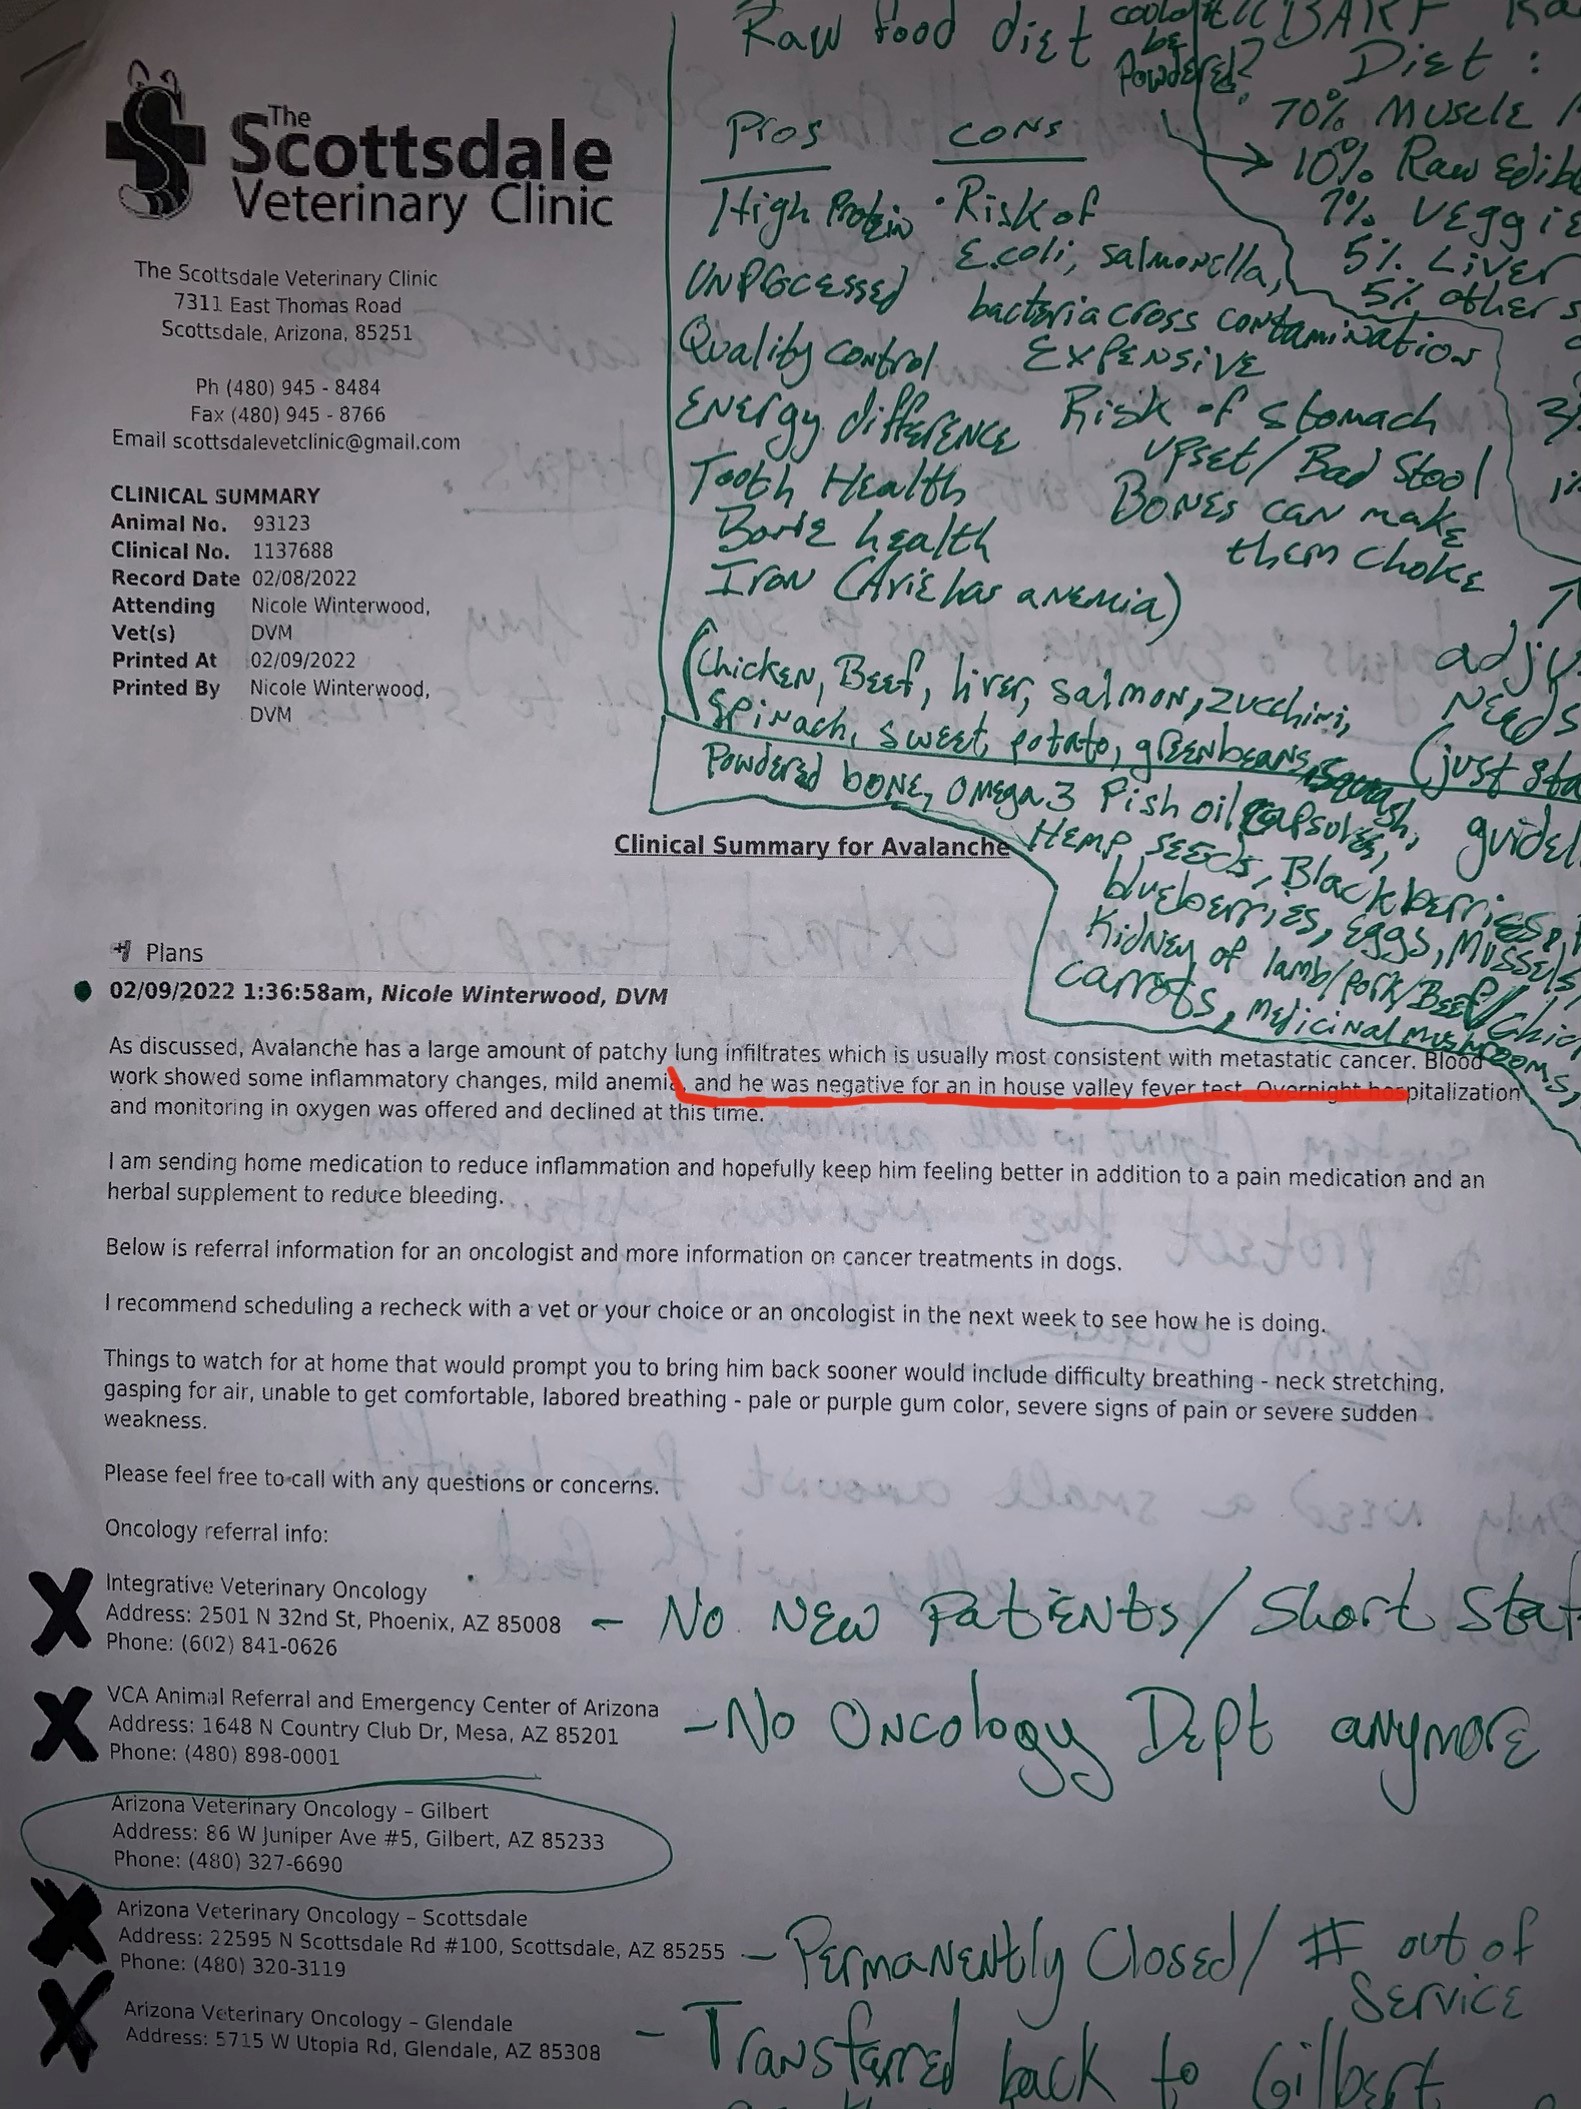 The
Scottsdale
Veterinary Clinic
The Scottsdale Veterinary Clinic
7311 East Thomas Road
Scottsdale, Arizona, 85251
Ph (480) 945 - 8484
Fax (480) 945 - 8766
Email scottsdalevetclinic@gmail.com
CLINICAL SUMMARY
Animal No. 93123
Clinical No. 1137688
Record Date 02/08/2022
Attending Nicole Winterwood,
Vet(s) DVM
Printed At 02/09/2022
Printed By Nicole Winterwood,
DVM
Raw food diet
be
Powdered?
Pros cons
High Protein • Risk of
E.coli, salmonella,
UNPROcessed bacteria cross contamination
Quality control EXPENSIVE
ENERgy difference Risk of stomach
upset/ Bad Stool
Tooth Health BONEs can make
Bone health them choke
Iron (Avie has anemia)
(Chicken, Beef, liver, salmon, zucchini,
Spinach, sweet potato, greenbeans,
Powdered bone, Omega 3 Fish oil capsules,
Hemp seeds, Blackberries,
blueberries, eggs, Mussels,
Kidney of lamb/pork/Beef/
carrots, medicinal mushrooms,
BARF
Diet :
70% Muscle
10% Raw
7%
5% Liver
5% other
Needs
(just
Clinical Summary for Avalanche
Plans
02/09/2022 1:36:58am, Nicole Winterwood, DVM
As discussed, Avalanche has a large amount of patchy lung infiltrates which is usually most consistent with metastatic cancer. Blood
work showed some inflammatory changes, mild anemia, and he was negative for an in house valley fever test. Overnight hospitalization
and monitoring in oxygen was offered and declined at this time.
I am sending home medication to reduce inflammation and hopefully keep him feeling better in addition to a pain medication and an
herbal supplement to reduce bleeding.
Below is referral information for an oncologist and more information on cancer treatments in dogs.
I recommend scheduling a recheck with a vet or your choice or an oncologist in the next week to see how he is doing.
Things to watch for at home that would prompt you to bring him back sooner would include difficulty breathing - neck stretching,
gasping for air, unable to get comfortable, labored breathing - pale or purple gum color, severe signs of pain or severe sudden
weakness.
Please feel free to call with any questions or concerns.
Oncology referral info:
Integrative Veterinary Oncology
Address: 2501 N 32nd St, Phoenix, AZ 85008 – No New Patients/ Short
Phone: (602) 841-0626
VCA Animal Referral and Emergency Center of Arizona
Address: 1648 N Country Club Dr, Mesa, AZ 85201 – No Oncology Dept anymore
Phone: (480) 898-0001
Arizona Veterinary Oncology – Gilbert
Address: 86 W Juniper Ave #5, Gilbert, AZ 85233
Phone: (480) 327-6690
Arizona Veterinary Oncology – Scottsdale
Address: 22595 N Scottsdale Rd #100, Scottsdale, AZ 85255 – Permanently Closed/ # out of
Phone: (480) 320-3119 Service
Arizona Veterinary Oncology – Glendale
Address: 5715 W Utopia Rd, Glendale, AZ 85308 – Transferred back to Gilbert